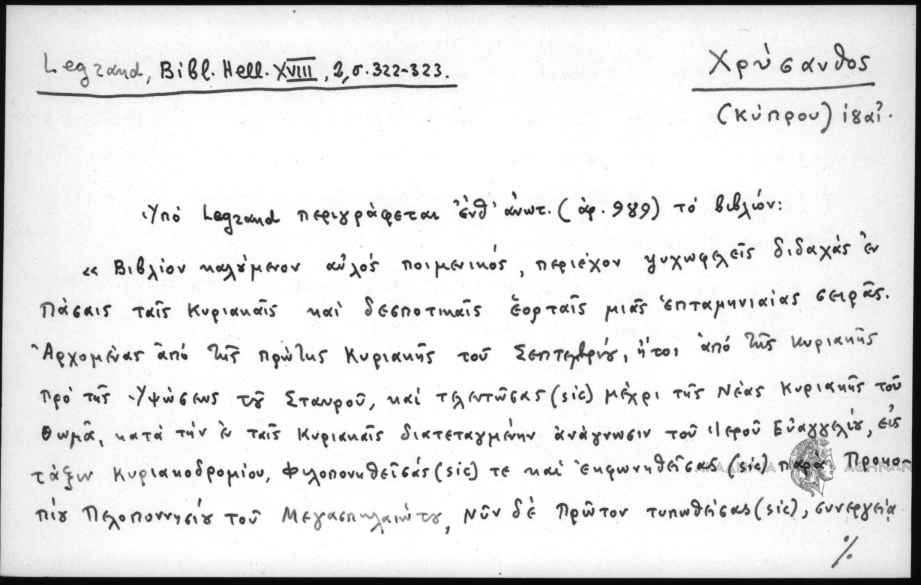 Legrand, Bibl. Hell. XVIII, 2, σ. 322-323.
Χρύσανθος
(Κύπρου) ιβαϊ.
Ὑπό Legrand περιγράφεται ἐνθ' ἀνωτ. (ἀρ. 989) τό βιβλίον:
« Βιβλίον καλούμενον αὐλός ποιμενικός, περιέχον ψυχωφελεῖς διδαχάς ἐν
Πάσαις ταῖς Κυριακαῖς καί δεσποτικαῖς ἑορταῖς μιᾶς ἑπταμηνιαίας σειρᾶς.
Ἀρχομένας ἀπό τῆς πρώτης Κυριακῆς τοῦ Σεπτεμβρίου, ἤτοι ἀπό τῆς Κυριακῆς
πρό τῆς Ὑψώσεως τοῦ Σταυροῦ, καί τελευτώσας (sic) μέχρι τῆς Νέας Κυριακῆς τοῦ
Θωμᾶ, κατά τήν ἐν ταῖς Κυριακαῖς διατεταγμένην ἀνάγνωσιν τοῦ Ἱεροῦ Εὐαγγελίου, εἰς
τάξιν Κυριακοδρομίου, Φιλοπονηθεῖσάς (sic) τε καί ἐκφωνηθεῖσας (sic) παρά Προκο-
πίου Πελοποννησίου τοῦ Μεγασπηλαιώτου, Νῦν δέ Πρῶτον τυπωθεῖσας (sic), συνεργείᾳ
%
ΑΘΗΝΩΝ